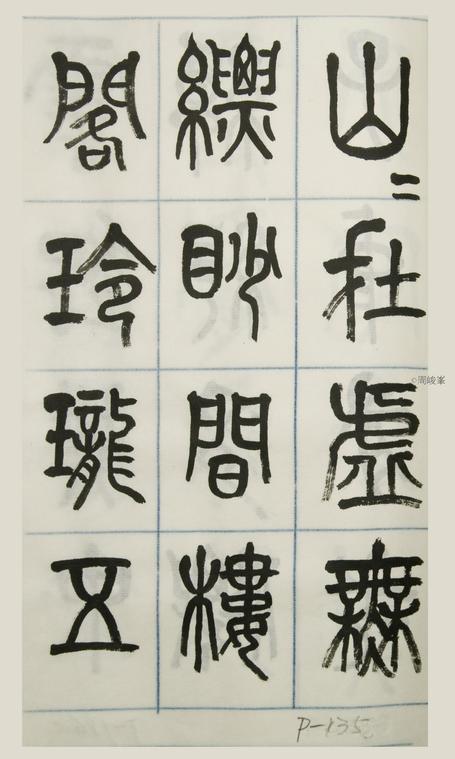 山〻在虛無
縹眇間樓
閣玲瓏五
P-135
©周峻峯